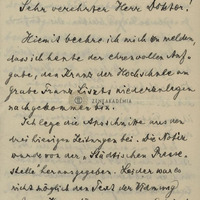 Sehr verehrter Herr Doktor!
Hiemit beehre ich mich zu melden,
dass ich heute der ehrenvollen Auf-
gabe, den Kranz der Hochschule am
Grabe Franz Liszts niederzulegen
nachgekommen bin.
ZENEAKADÉMIA
Ich lege die Ausschnitte aus den
zwei hiesigen Zeitungen bei. Die Notiz
wurde von der „Städtischen Presse-
stelle" herausgegeben. Leider war es
nicht möglich den Text der Widmung